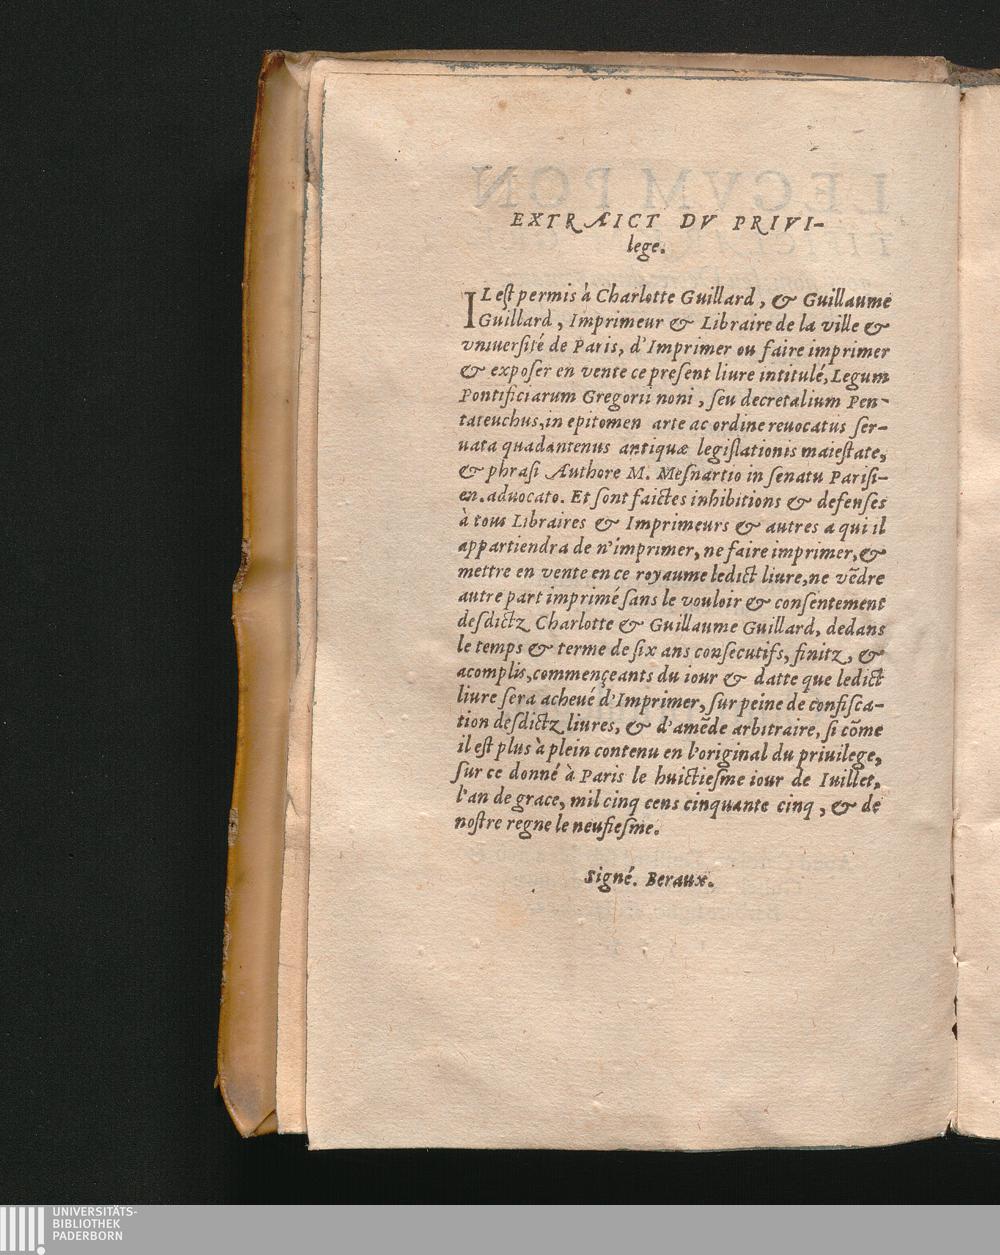 EXTRAICT DV PRIVI-
lege.
IL eſt permis à Charlotte Guillard, & Guillaume
Guillard, Imprimeur & Libraire de la ville &
vniuerſité de Paris, d'Imprimer ou faire imprimer
& expoſer en vente ce preſent liure intitulé, Legum
Pontificiarum Gregorii noni, ſeu decretalium Pen-
tateuchus, in epitomen arte ac ordine reuocatus ſer-
uata quadantenus antiquæ legiſlationis maieſtate,
& phraſi Authore M. Meſnartio in ſenatu Pariſi-
en. aduocato. Et ſont faictes inhibitions & defenſes
à tous Libraires & Imprimeurs & autres a qui il
appartiendra de n'imprimer, ne faire imprimer, &
mettre en vente en ce royaume ledict liure, ne vēdre
autre part imprimé ſans le vouloir & conſentement
deſdictz Charlotte & Guillaume Guillard, dedans
le temps & terme de ſix ans conſecutifs, finitz, &
acomplis, commençeants du iour & datte que ledict
liure ſera acheué d'Imprimer, ſur peine de confiſca-
tion deſdictz liures, & d'amēde arbitraire, ſi cōme
il eſt plus à plein contenu en l'original du priuilege,
ſur ce donné à Paris le huictieſme iour de Iuillet,
l'an de grace, mil cinq cens cinquante cinq, & de
noſtre regne le neufieſme.
Signé. Beraux.
UNIVERSITÄTS-
BIBLIOTHEK
PADERBORN